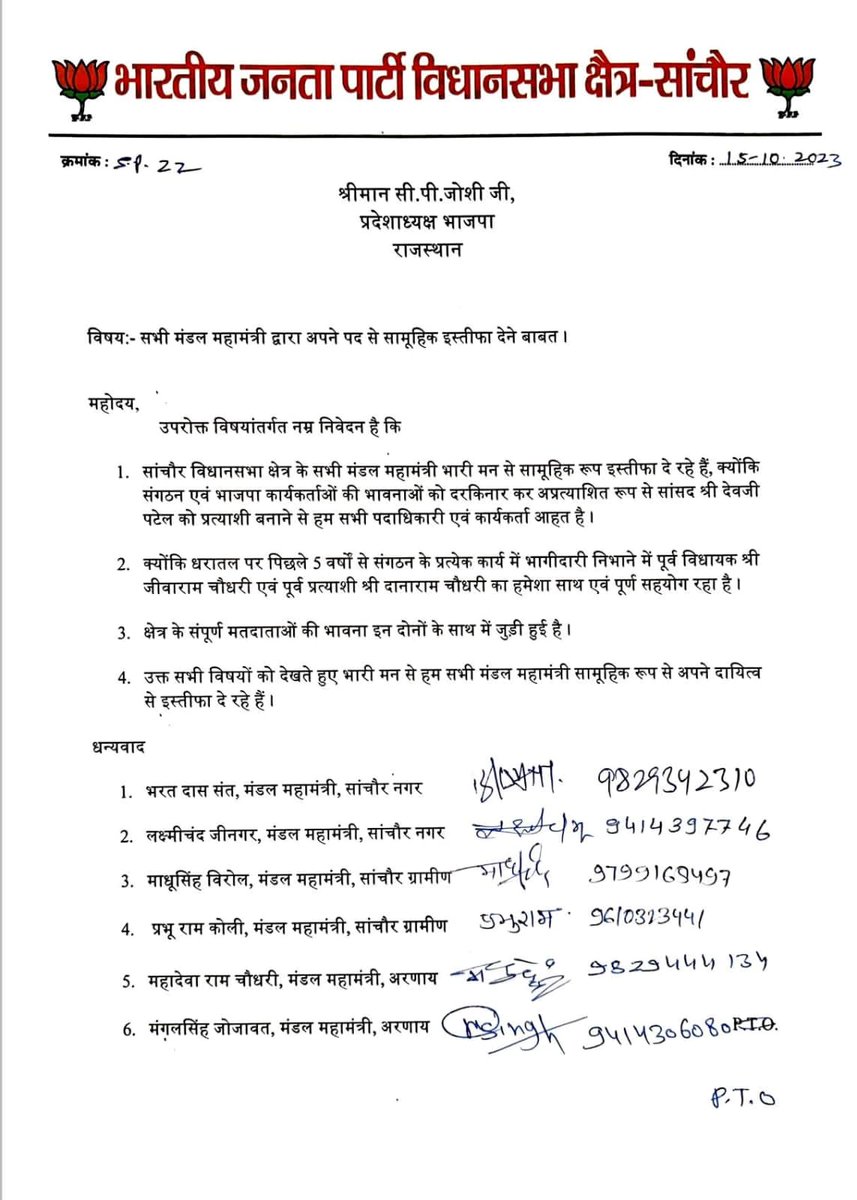 भारतीय जनता पार्टी विधानसभा क्षैत्र-सांचौर
क्रमांक : S.P. 22 दिनांक : 15-10. 2023
श्रीमान सी.पी.जोशी जी,
प्रदेशाध्यक्ष भाजपा
राजस्थान
विषय:- सभी मंडल महामंत्री द्वारा अपने पद से सामूहिक इस्तीफा देने बाबत ।
महोदय,
उपरोक्त विषयांतर्गत नम्र निवेदन है कि
1. सांचौर विधानसभा क्षेत्र के सभी मंडल महामंत्री भारी मन से सामूहिक रूप इस्तीफा दे रहे हैं, क्योंकि
संगठन एवं भाजपा कार्यकर्ताओं की भावनाओं को दरकिनार कर अप्रत्याशित रूप से सांसद श्री देवजी
पटेल को प्रत्याशी बनाने से हम सभी पदाधिकारी एवं कार्यकर्ता आहत है ।
2. क्योंकि धरातल पर पिछले 5 वर्षों से संगठन के प्रत्येक कार्य में भागीदारी निभाने में पूर्व विधायक श्री
जीवाराम चौधरी एवं पूर्व प्रत्याशी श्री दानाराम चौधरी का हमेशा साथ एवं पूर्ण सहयोग रहा है ।
3. क्षेत्र के संपूर्ण मतदाताओं की भावना इन दोनों के साथ में जुड़ी हुई है ।
4. उक्त सभी विषयों को देखते हुए भारी मन से हम सभी मंडल महामंत्री सामूहिक रूप से अपने दायित्व
से इस्तीफा दे रहे हैं ।
धन्यवाद
1. भरत दास संत, मंडल महामंत्री, सांचौर नगर 9829342310
2. लक्ष्मीचंद जीनगर, मंडल महामंत्री, सांचौर नगर 9414397746
3. माधूसिंह विरोल, मंडल महामंत्री, सांचौर ग्रामीण 9799169497
4. प्रभू राम कोली, मंडल महामंत्री, सांचौर ग्रामीण प्रभुराम 9610323441
5. महादेवा राम चौधरी, मंडल महामंत्री, अरणाय 9829444134
6. मंगलसिंह जोजावत, मंडल महामंत्री, अरणाय MSingh 9414306080 P.T.O.
P.T.O